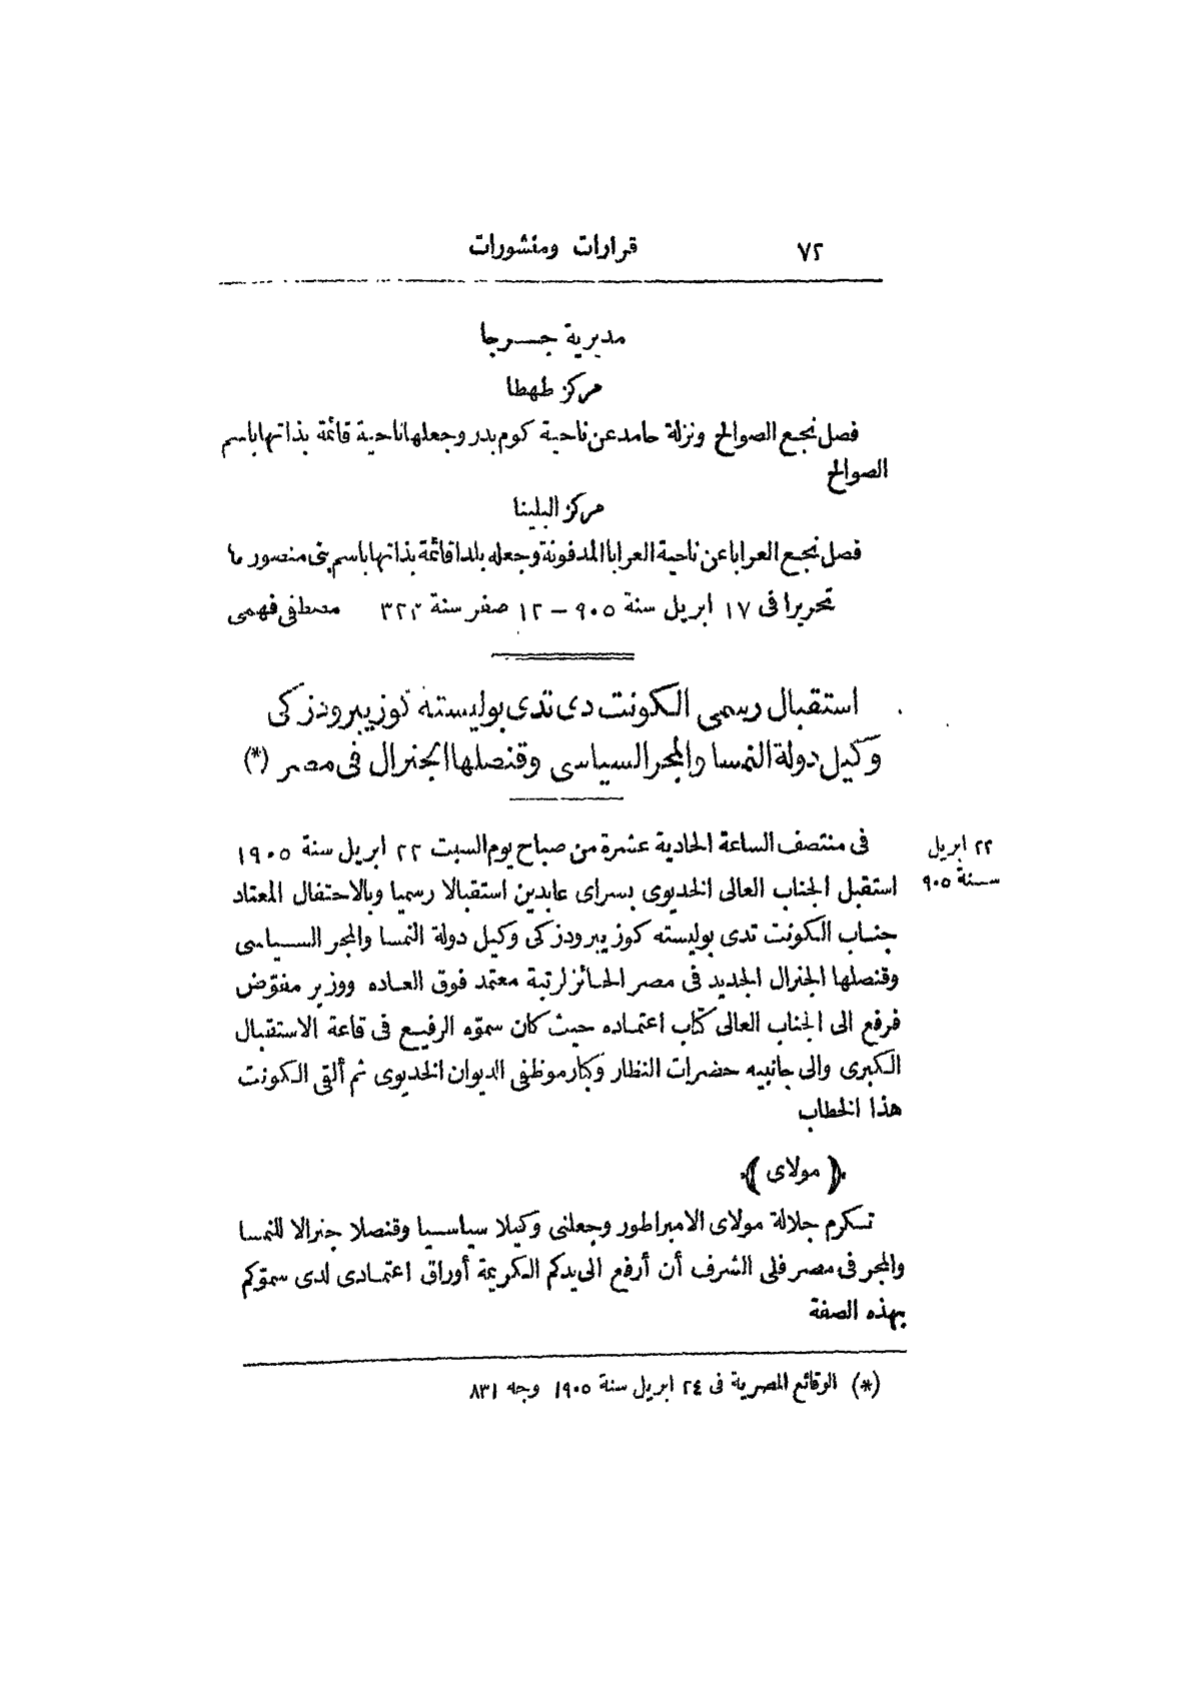 ٧٢ قرارات ومنشورات
مديرية جرجا
مركز طهطا
فصل نجع الصوالح ونزلة حامد عن ناحية كوم بدر وجعلها ناحية قائمة بذاتها باسم
الصوالح
مركز البلينا
فصل نجع العرابا عن ناحية العرابا المدفونة وجعله بلدا قائمة بذاتها باسم بنى منصور ما
تحريرا فى ١٧ ابريل سنة ٩٠٥ – ١٢ صفر سنة ٣٢٣ مصطفى فهمى
استقبال رسمى الكونت دى تدى بوليسته كوزيبرودزكى
وكيل دولة النمسا والمجر السياسى وقنصلها الجنرال فى مصر (*)
٢٢ ابريل
سنة ٩٠٥
فى منتصف الساعة الحادية عشرة من صباح يوم السبت ٢٢ ابريل سنة ١٩٠٥
استقبل الجناب العالى الخديوى بسراى عابدين استقبالا رسميا وبالاحتفال المعتاد
جناب الكونت تدى بوليسته كوزيبرودزكى وكيل دولة النمسا والمجر السياسى
وقنصلها الجنرال الجديد فى مصر الحائز لرتبة معتمد فوق العاده ووزير مفوّض
فرفع الى الجناب العالى كتاب اعتماده حيث كان سموّه الرفيع فى قاعة الاستقبال
الكبرى والى جانبيه حضرات النظار وكبار موظفى الديوان الخديوى ثم ألقى الكونت
هذا الخطاب
﴿ مولاى ﴾
تكرم جلالة مولاى الامبراطور وجعلنى وكيلا سياسيا وقنصلا جنرالا للنمسا
والمجر فى مصر فلى الشرف أن أرفع الى يدكم الكريمة أوراق اعتمادى لدى سموّكم
بهذه الصفة
(*) الوقائع المصرية فى ٢٤ ابريل سنة ١٩٠٥ وجه ٨٣١